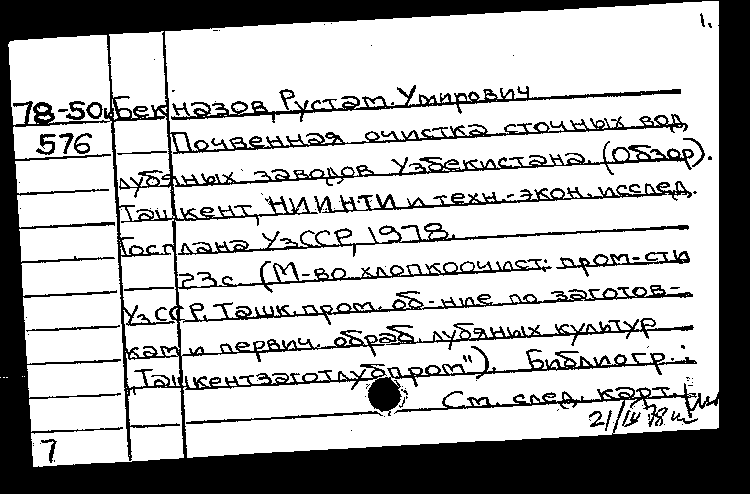 1.
78-50и Бекназов, Рустам. Умирович
576 Почвенная очистка сточных вод
лубяных заводов Узбекистана. (Обзор).
Ташкент, НИИНТИ и техн.-экон. исслед.
Госплана УзССР, 1978.
23с. (М-во хлопкоочист: пром-сти
УзССР. Ташк. пром. об-ние по заготов-
кам и первич. обраб. лубяных культур
„Ташкентзаготлубпром"). Библиогр.:
См. след. карт.
21/IV 78
7